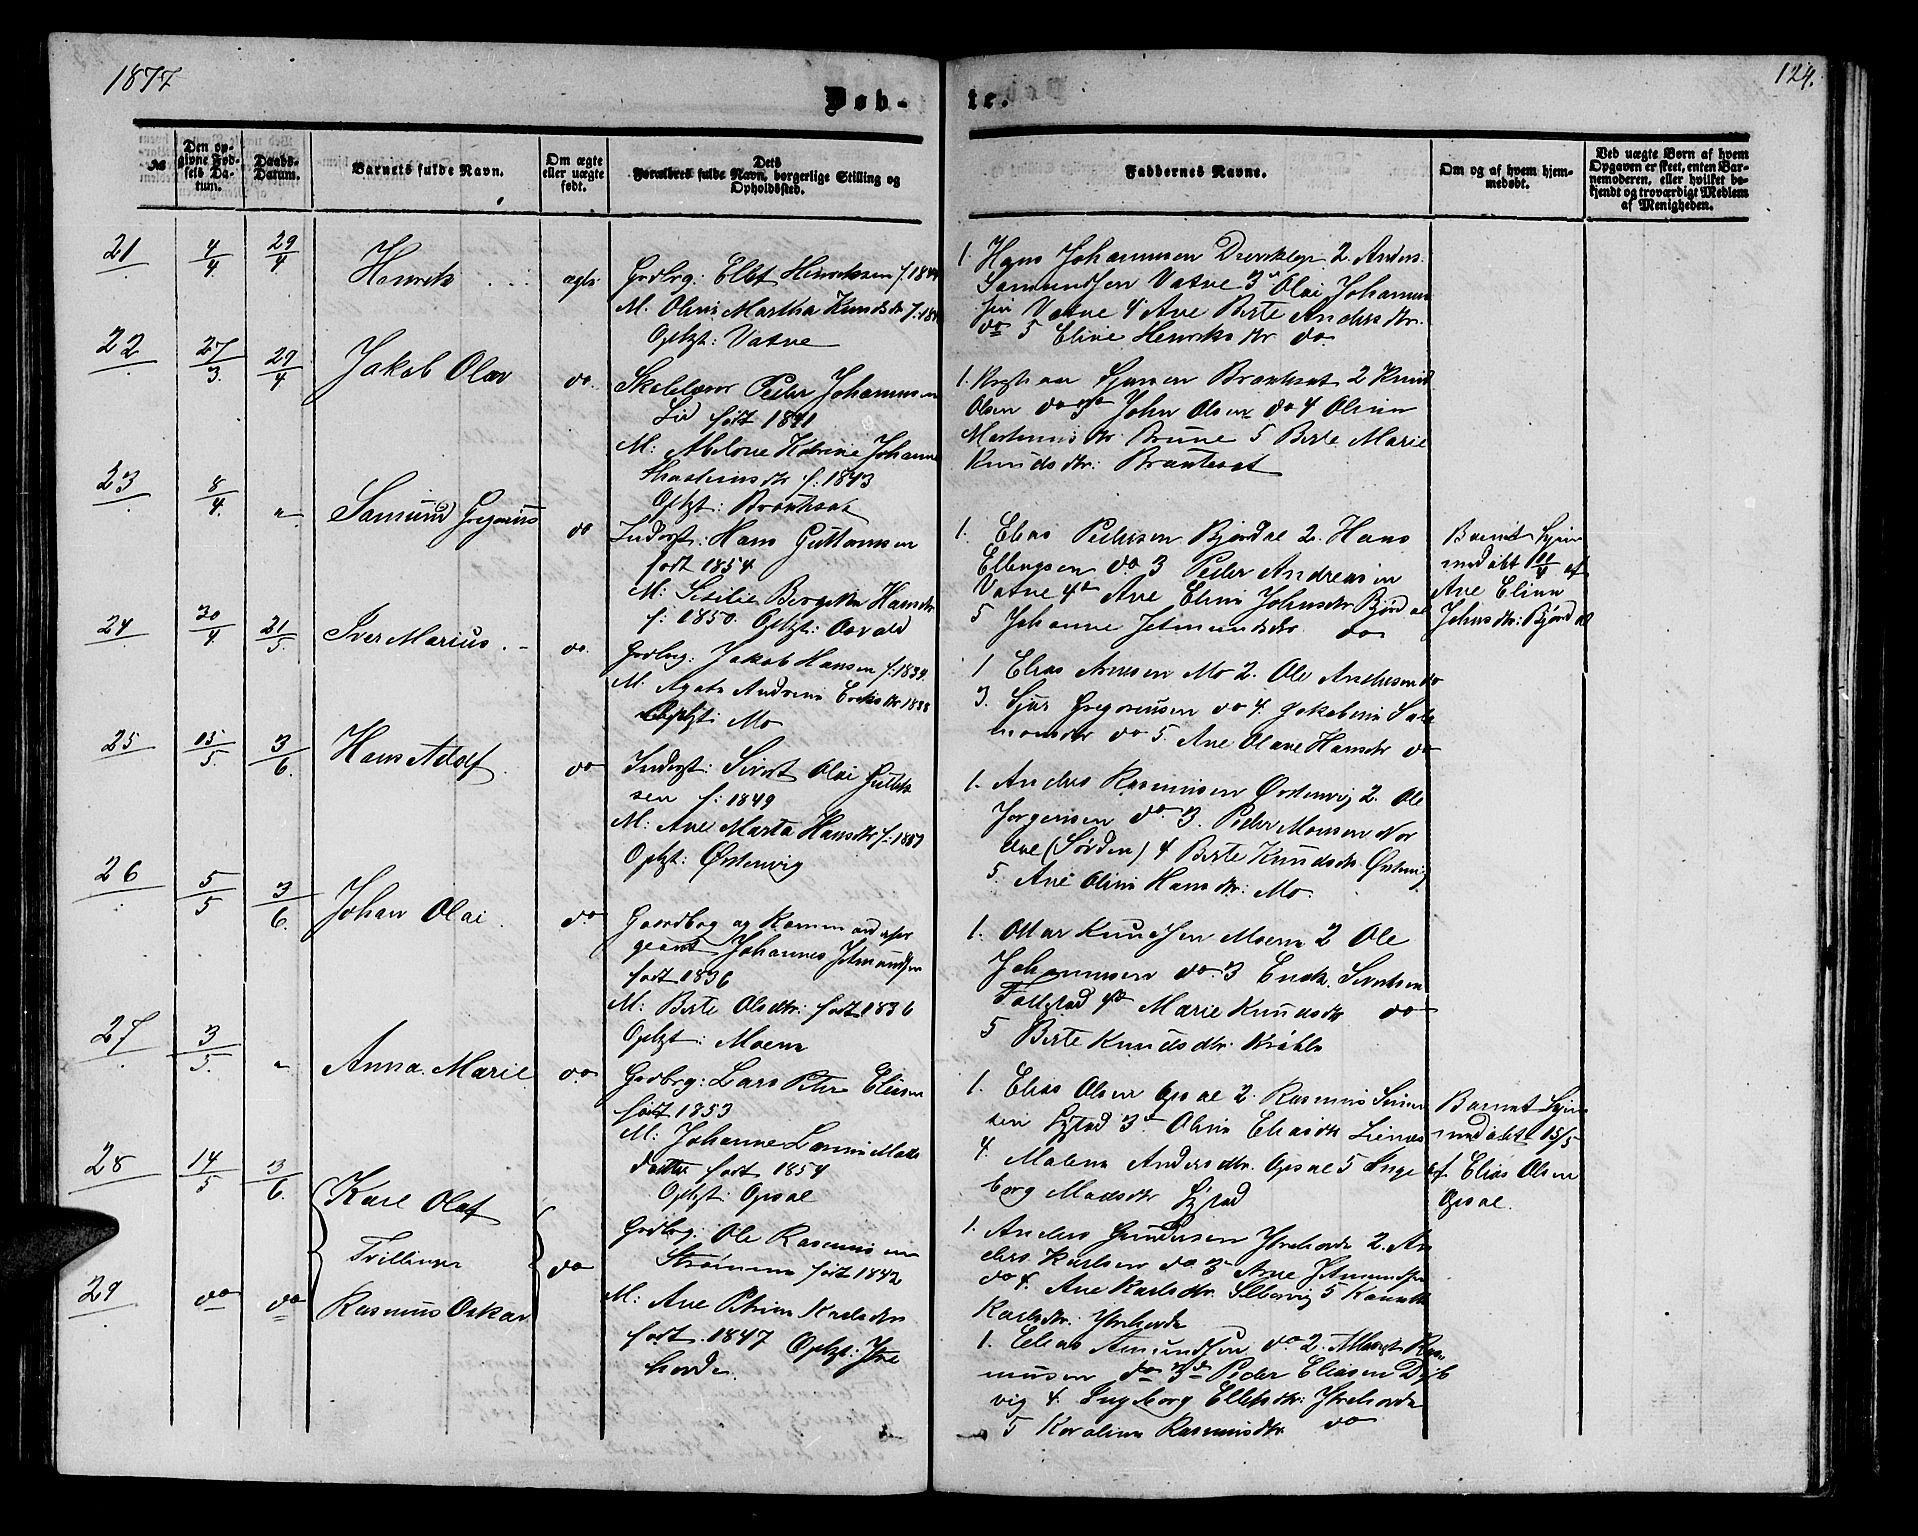 1877
124.
Døb-
te.
№
Den op-
givne Fød-
sels Da-
tum.
Daabs-
Datum.
Barnets fulde Navn.
Om ægte
eller uægte
født.
Dets
Forældres fulde Navn, borgerlige Stilling og
Opholdssted.
Faddernes Navne.
Om og af hvem hjem-
medøbt.
Ved uægte Børn af hvem
Opgaven er skeet, enten Bar-
nemoderen, eller hvilket be-
kjendt og troværdigt Medlem
af Menigheden.
21 4/4 29/4 Henrik ægte
Grdbrg: Ellet Henriksen
M. Olina Martha Knudsdtr
Oplzt: Vatne
1. Hans Johannesen 2. Anders
Samundsen Vatne 3 Olai Johannes
sen Vatne 4 Ane Berte Andersdtr.
do 5 Eline Henriksdtr do.
22 27/3. 29/4 Jakob Olav do.
Skolelærer Peder Johannesen
Lid født 1841
M: Abelone Katrine Johanne
f: 1843
Oplzt: Brautesæt
1. Sjursen Brautesæt 2 Knud
Olsen do 3 John Olsen do 4 Olina
Martinusdtr Brune 5 Berte Marie
Knudsdtr: Brautesæt
23 8/4. " Samund Gregorius do
Inderst: Hans Guttormsen
født 1854
M: Sesilie Hansdtr
f: 1850. Oplzt: Aavald
1. Elias Pedersen Bjørdal 2. Hans
Ellingsen do 3 Peder Andreasen
Vatne 4 Ane Elina Johnsdtr Bjørdal
5 Johanne Jetmundsdtr do
Barnet hjem
medøbt 11/4 af
Ane Elina
Johnsdtr: Bjørdal
24 30/4. 21/5. Iver Marius. do.
Grdbrg: Jakob Hansen f: 1834
M. Agate Andrena
Oplzt: Mo
1 Elias Arnesen Mo 2. Ole Andersen do
3. Sjur Gregoriusen do 4. Jakobina Salo
monsdtr do 5. Ane Olane Hansdtr do
25 15/5. 3/6. Hans Adolf. do
Inderst: Sivert Olai
sen f: 1849
M: Ane Marta Hansdtr
Oplzt: Østenvig
1. Anders Rasmussen Østenvig 2. Ole
Jørgensen do. 3. Peder Monsen Nor
dre (Sørden) 4 Berte Knudsdtr Østenvig
5. Ane Olina Hansdtr: Mo.
26 5/5 3/6. Johan Olai. do
Gaardbrg og Kommandersær
geant Johannes Jetmundsen
født 1836
M: Berte Olsdtr: født 1836
Oplzt: Moene
1. Ottar Knudsen Moene 2 Ole
Johannesen do. 3 Endr. Sivertsen
Folkstad 4 Marie Knudsdtr do
5 Berte Knudsdtr.
27 3/5. " Anna Marie do
Grdbrg: Lars Peter Eliasen
født 1853
M. Johanne Mads
datter født 1854
Oplzt: Opsal
1. Elias Olsen Opsal 2. Rasmus
sen 3 Olina Eliasdtr
4. Malena Andersdtr. Opsal 5 Inge
borg Madsdtr
Barnet hjem
medøbt 15/5
af. Elias Olsen
Opsal.
28 14/5 3/6. Karl Olaf
Tvillinger do
Grdbrg. Ole Rasmussen
Strømme født 1842
M. Ane Petrine Karlsdtr
født. 1847 Oplzt: Ytre
horde.
1. Anders Gundersen Ytrehorde 2. An
ders Karlsen do 3 Arne Jetmundsen
do 4. Ane Karlsdtr. 5
Karlsdtr. Ytrehorde
29 do do Rasmus Oskar
1. Elias Amundsen do 2. Ras
musen do 3 Peder Eliasen
vig 4. Ingeborg Ellingsdtr: Ytrehorde
5 Karolina Rasmusdtr do